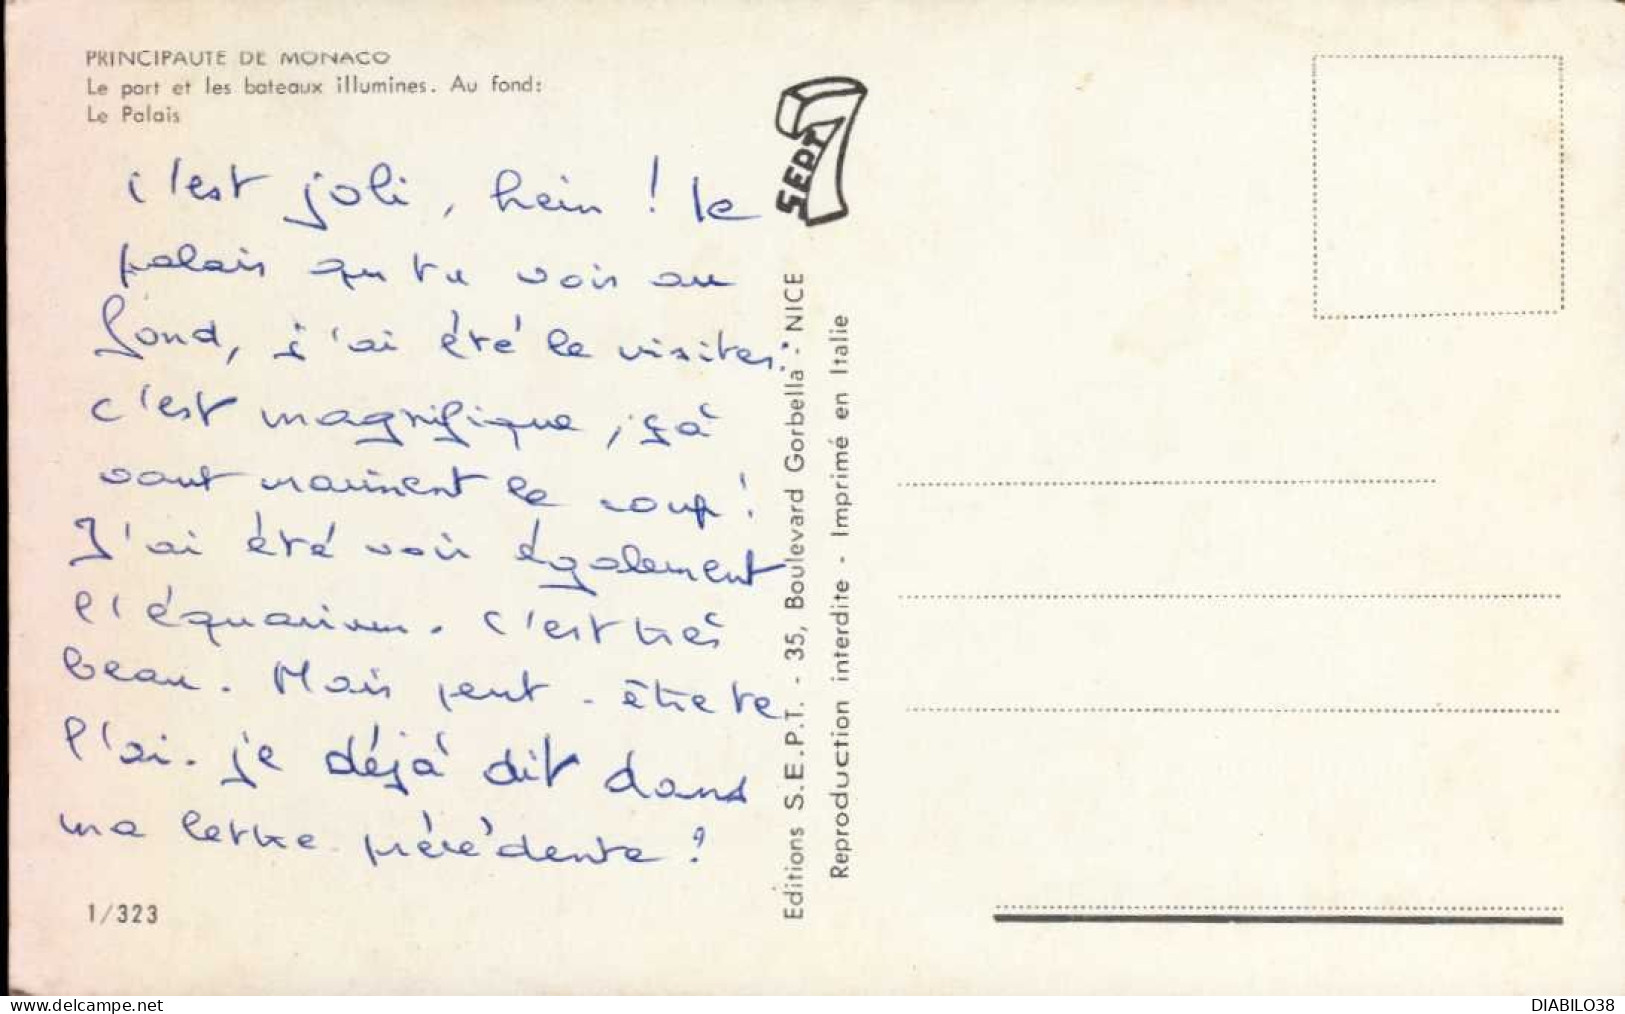 PRINCIPAUTE DE MONACO
Le port et les bateaux illumines. Au fond:
Le Palais
c'est joli, hein ! le
palais que tu vois au
fond, j'ai été le visiter.
c'est magnifique, çà
vaut vraiment le coup !
J'ai été voir également
l'équarium. C'est très
beau. Mais peut-être te
l'ai-je déjà dit dans
ma lettre précédente ?
1/323
SEPT 7
Editions S.E.P.T. - 35, Boulevard Gorbella - NICE
Reproduction interdite - Imprimé en Italie
www.delcampe.net
DIABILO38